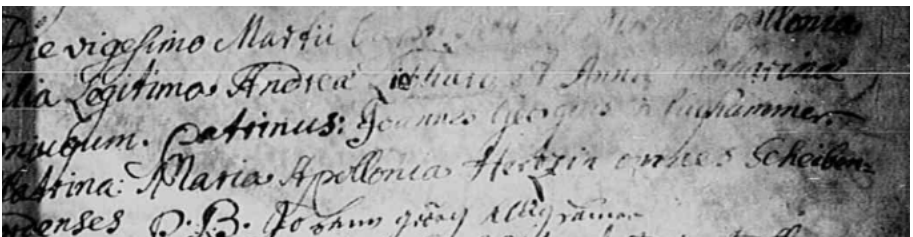 Die vigesimo Martii pollonia
ilia Legitima Andreæ et Anna Catharina
niugum. Patrinus: Joannes Georgius Klughammer.
Patrina: Maria Apollonia Hertzin omnes Scheiben=
denses P.B. Johann Georg Klughamer